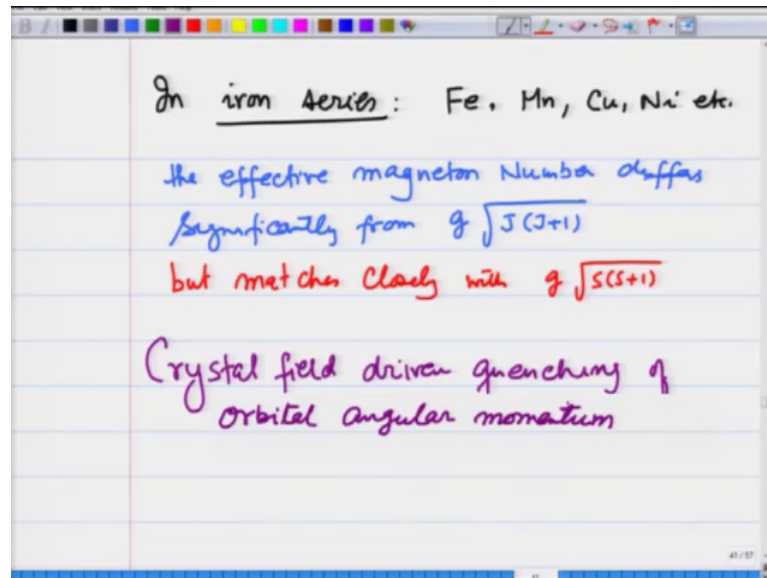 In iron series: Fe, Mn, Cu, Ni etc.
the effective magneton Number differs
Significantly from g √J(J+1)
but matches closely with g √S(S+1)
Crystal field driven quenching of
orbital angular momentum
41/57